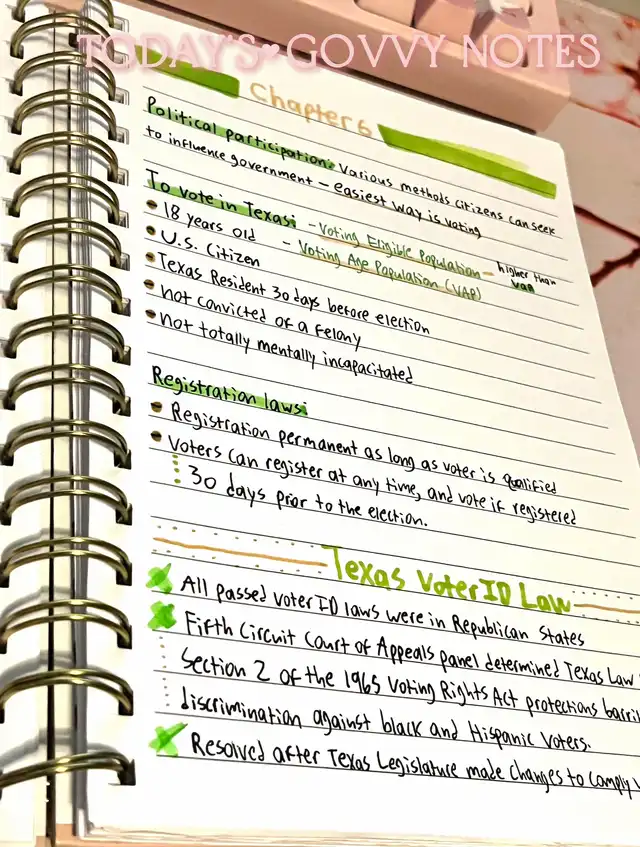 TODAY'S♥ GOVVY NOTES
Chapter 6
Political participation: Various methods citizens can seek
to influence government – easiest way is voting
To vote in Texas: – Voting Eligible Population – higher than VAP
• 18 years old – Voting Age Population (VAP)
• U.S. Citizen
• Texas Resident 30 days before election
• not convicted of a felony
• not totally mentally incapacitated
Registration laws:
• Registration permanent as long as voter is qualified
• Voters can register at any time, and vote if registered
30 days prior to the election.
Texas Voter ID Law
All passed voter ID laws were in Republican States
Fifth Circuit Court of Appeals panel determined Texas Law
Section 2 of the 1965 Voting Rights Act protections
discrimination against black and Hispanic voters.
Resolved after Texas Legislature made changes to comply